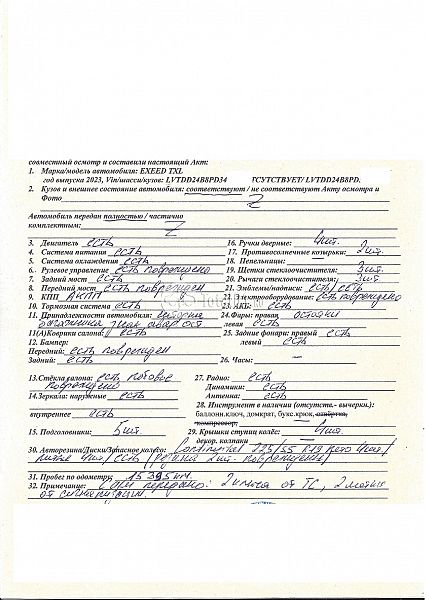 совместный осмотр и составили настоящий Акт:
1. Марка/модель автомобиля: EXEED TXL
год выпуска 2023, Vin/шасси/кузов: LVTDD24B8PD34 ТСУТСТВУЕТ/ LVTDD24B8PD.
2. Кузов и внешнее состояние автомобиля: соответствуют / не соответствуют Акту осмотра и
Фото
Автомобиль передан полностью / частично
комплектным:
3. Двигатель есть
16. Ручки дверные: 4шт.
4. Система питания есть
17. Противосолнечные козырьки: 2шт.
5. Система охлаждения есть
18. Пепельницы:
6. Рулевое управление есть повреждено
19. Щетки стеклоочистителя: 3шт.
7. Задний мост есть
20. Рычаги стеклоочистителя: 3шт.
8. Передний мост есть поврежден
21. Эмблемы/надписи: есть/есть
9. КПП АКПП
22. Электрооборудование: есть повреждено
10. Тормозная система есть
23. АКБ: есть
11. Принадлежности автомобиля:
знак авар ост
24. Фары: правая остатки
левая есть
П(А)Коврики салона: есть
25. Задние фонари: правый есть
левый есть
12. Бампер:
Передний: есть поврежден
Задний: есть
26. Часы:
13. Стёкла салона: есть лобовое
повреждено
27. Радио: есть
Динамики: есть
Антенна: есть
14. Зеркала: наружные есть
внутреннее есть
28. Инструмент в наличии (отсутств.- вычеркн.):
баллонн.ключ, домкрат, букс.крюк, отвёртка,
компрессор;
15. Подголовники: 5шт.
29. Крышки ступиц колёс: 4шт.
декор. колпаки
30. Авторезина/Диски/Запасное колесо: Continental 225/55 R19 лето 4шт/
литые 4шт/есть /Резина 2шт. повреждены/
31. Пробег по одометру: 15395км.
32. Примечание: СОТМ передано: 2 ключа от ТС, 2 метки
от сигнализации.